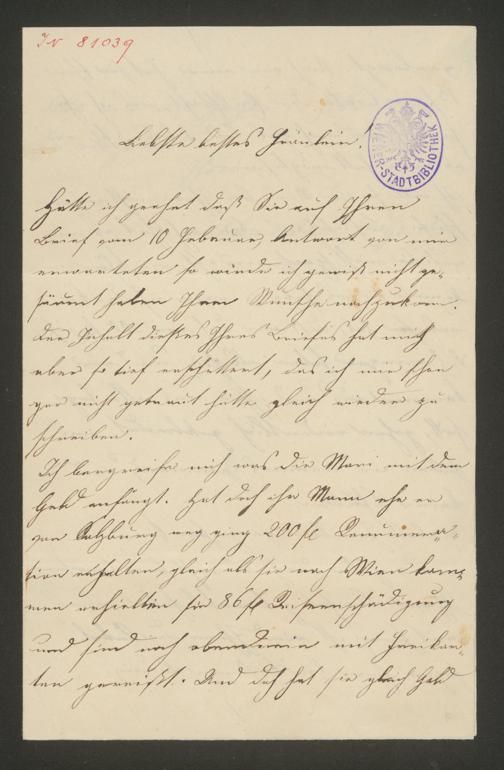 IN 81039
WIENER-STADTBIBLIOTHEK
Liebste bestes Fräulein!
Hätte ich geahnt daß Sie auf Ihren
Brief vom 10 Februar, Antwort von mir
erwarteten so würde ich gewiß nicht ge-
säumt haben Ihrem Wunsche nachzukom.
Der Inhalt dießes Ihres Briefes hat mich
aber so tief erschüttert, das ich mir schon
gar nicht getraut hätte gleich wieder zu
schreiben.
Ich begreife nich was die Mari mit dem
Geld anfängt. Hat doch ihr Mann ehe er
von Salzburg weg ging 200 fl Renumera-
tion erhalten, gleich als sie nach Wien kam-
men erhielten sie 86 fl Reiseentschädigung
und sind noch obendrein mit Freikar-
ten gereißt. Und doch hat sie gleich Geld